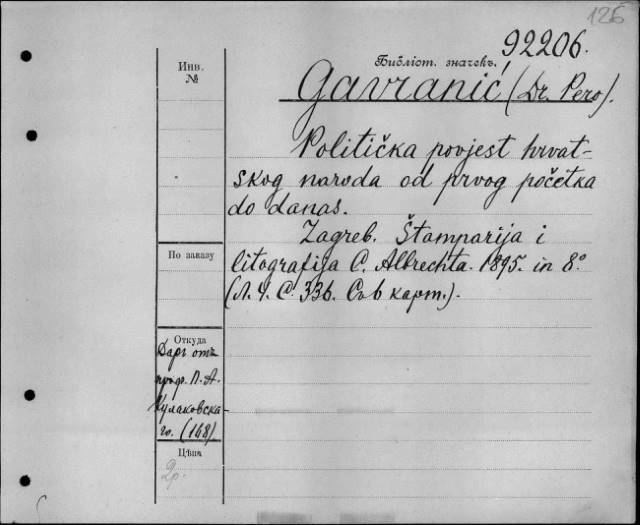 126
92206.
Инв.
№
Библіот. значекъ.
Gavranić, (Dr. Pero).
Politička povjest hrvat-
skog naroda od prvog početka
do danas.
Zagreb. Štamparija i
litografija C. Albrechta. 1895. in 8°
По заказу
(Л. Ч. С. 336. Съ 6 карт.).
Откуда
Даръ отъ
проф. П. А.
Кулаковска-
го. (148)
Цѣна
2р.